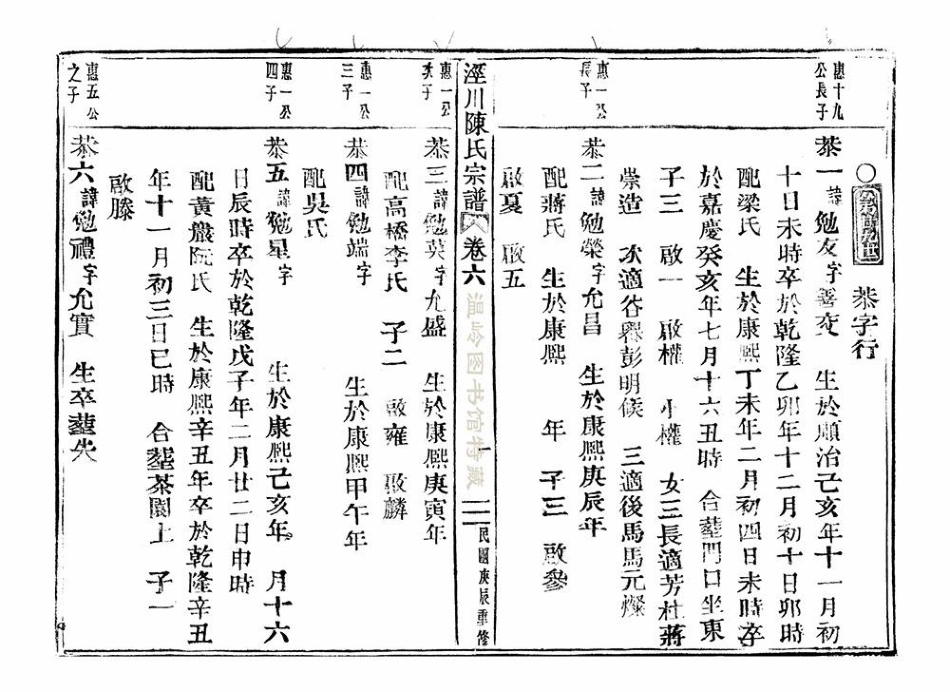 恭字行
惠十九公長子
恭一諱勉友字善交　生於順治己亥年十一月初
十日未時卒於乾隆乙卯年十二月初十日卯時
配梁氏　生於康熙丁未年二月初四日未時卒
於嘉慶癸亥年七月十六丑時　合塟門口坐東
子三　啟一　啟權　小權　女三長適芳杜蔣
崇造　次適谷嶴彭明候　三適後馬馬元燦
惠一公長子
恭二諱勉榮字允昌　生於康熙庚辰年
配蔣氏　生於康熙　年　子三　啟參
啟夏　啟五
涇川陳氏宗譜　卷六　一　民國庚辰重修
温岭图书馆特藏
惠一公次子
恭三諱勉英字允盛　生於康熙庚寅年
配高橋李氏　子二　啟雍　啟麟
惠一公三子
恭四諱勉端字　生於康熙甲午年
配吳氏
惠一公四子
恭五諱勉星字　生於康熙己亥年　月十六
日辰時卒於乾隆戊子年二月廿二日申時
配黃嚴阮氏　生於康熙辛丑年卒於乾隆辛丑
年十一月初三日巳時　合塟茶園上　子一
啟滕
惠五公之子
恭六諱勉禮字允實　生卒塟失